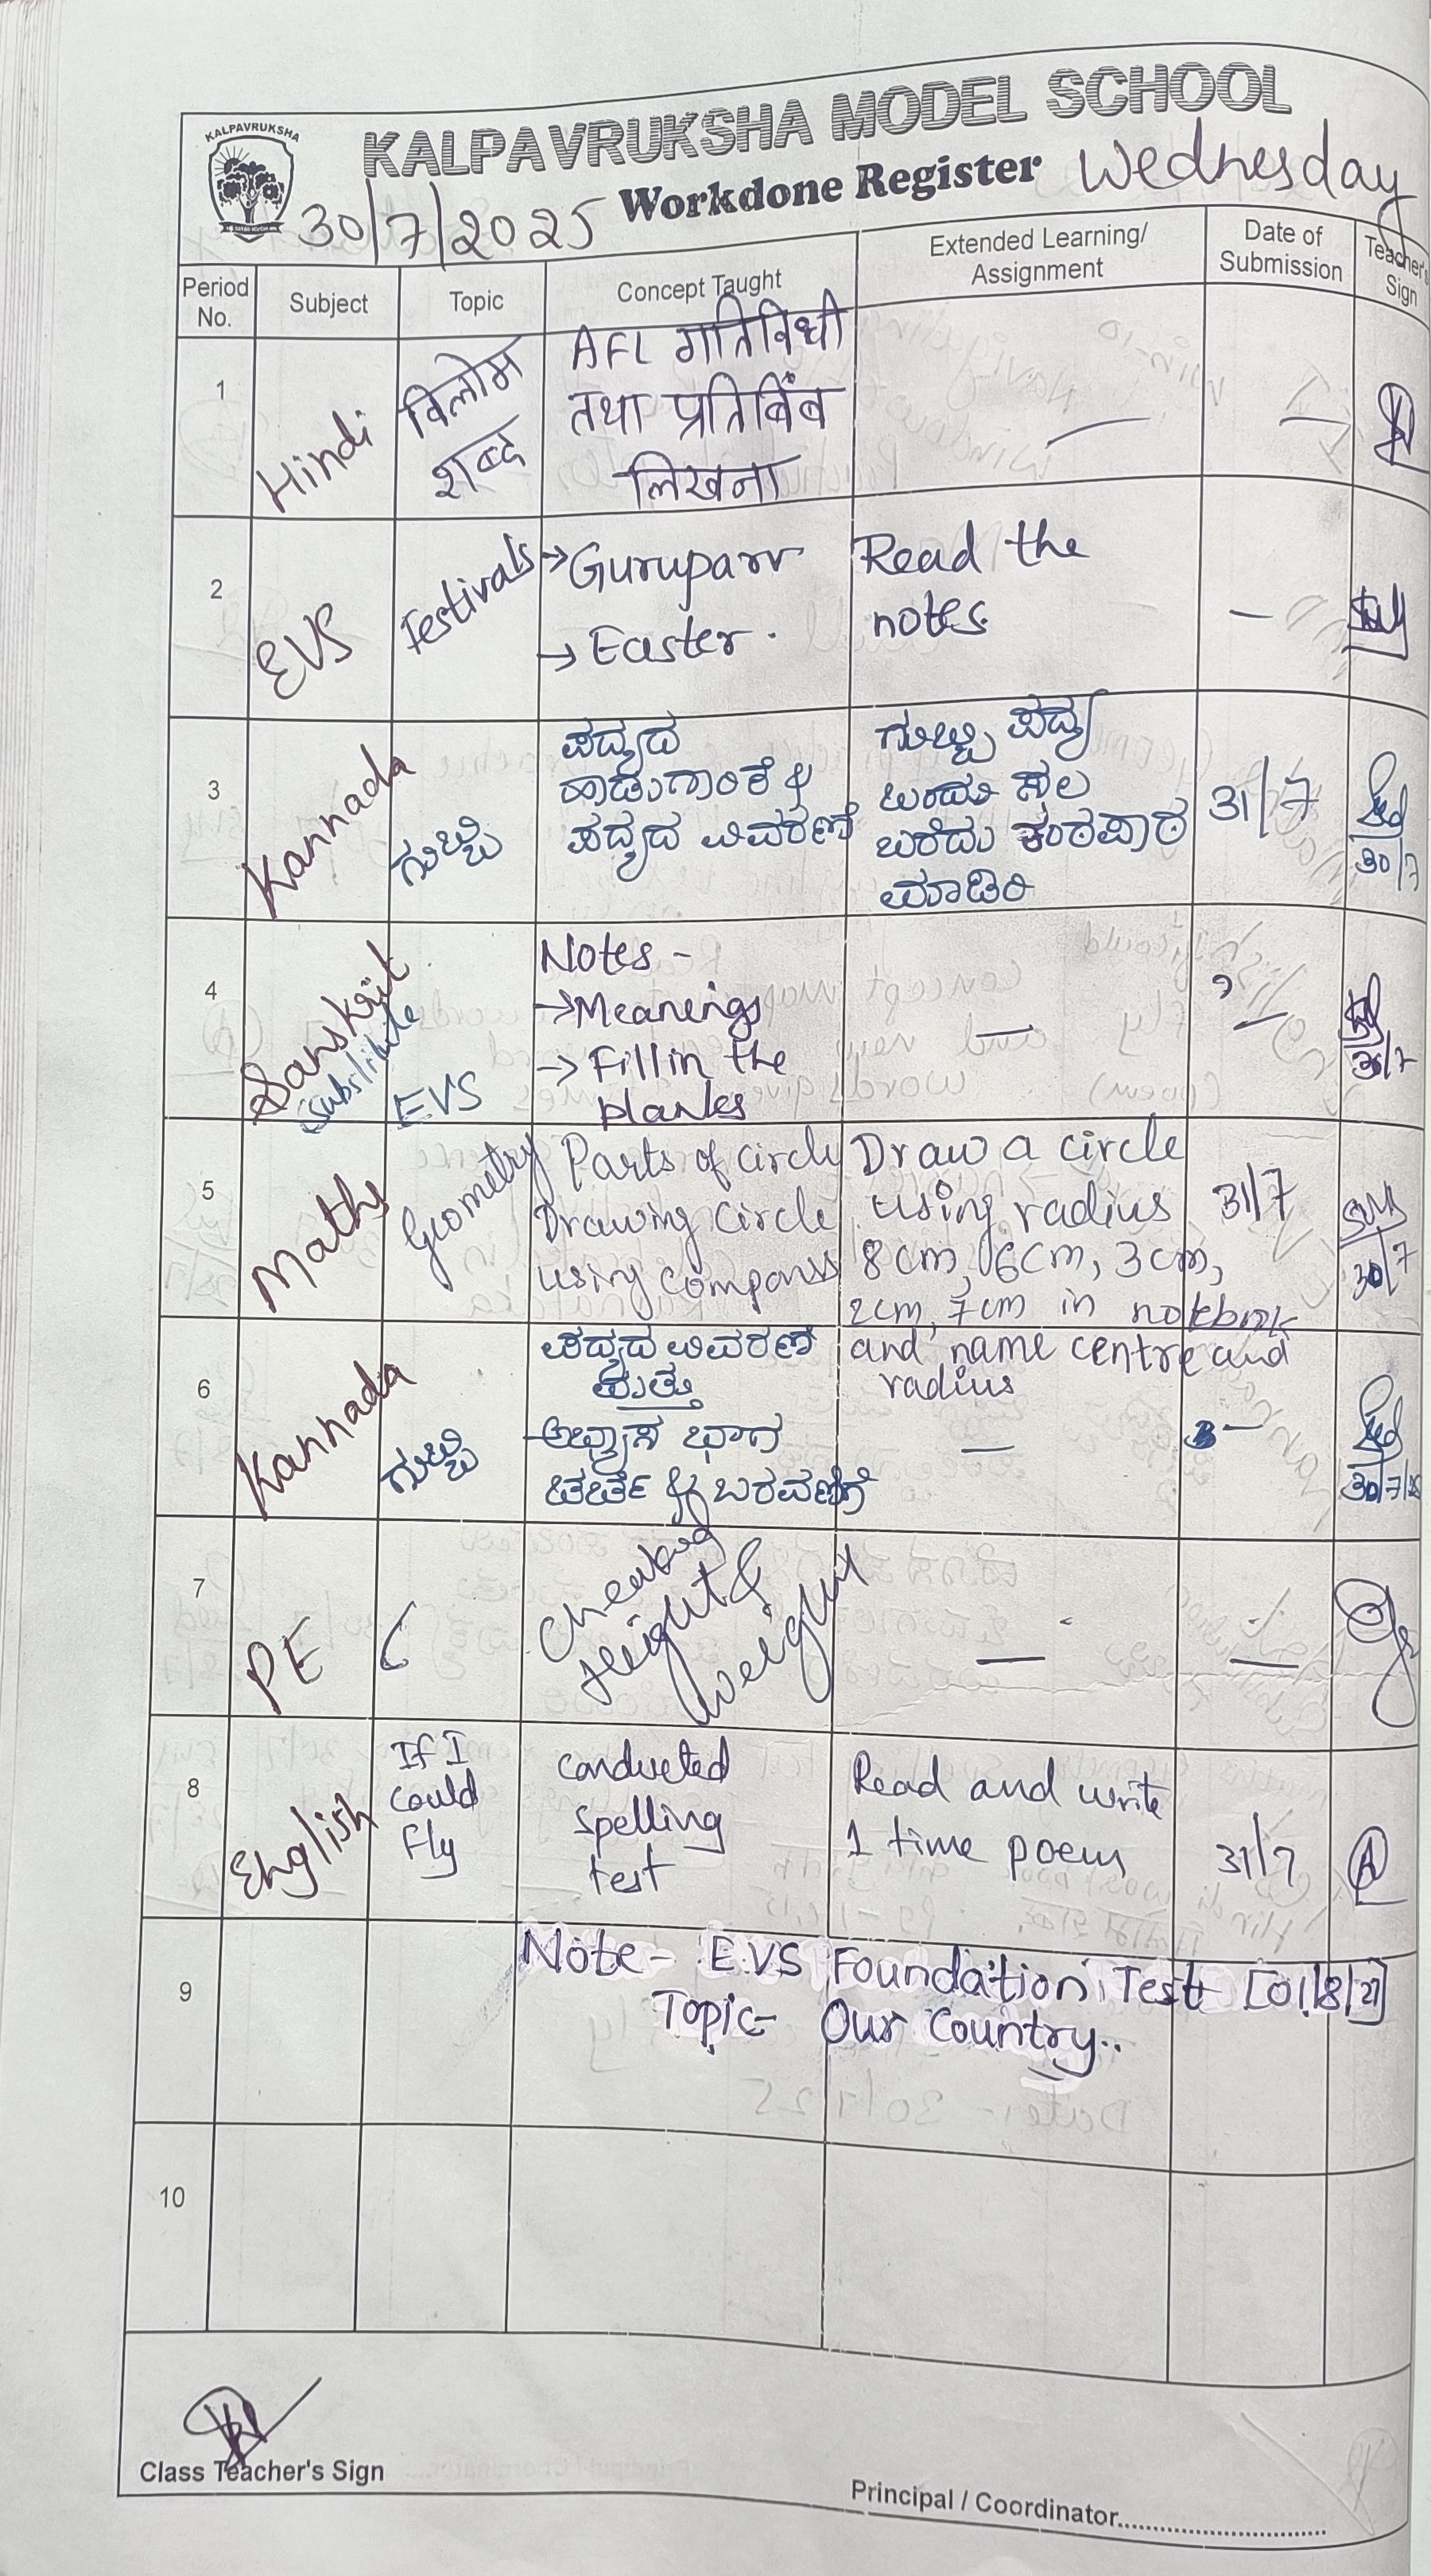 KALPAVRUKSHA
KALPAVRUKSHA MODEL SCHOOL
30/7/2025 Workdone Register Wednesday
Period No.
Subject
Topic
Concept Taught
Extended Learning/
Assignment
Date of
Submission
Teacher's
Sign
1
Hindi
विलोम
शब्द
AFL गतिविधी
तथा प्रतिबिंब
लिखना
—
—
2
EVS
Festivals
→ Guruparv
→ Easter.
Read the
notes.
—
3
Kannada
ಗುಬ್ಬಿ
ಪದ್ಯದ
ಹಾಡುಗಾರಿಕೆ &
ಪದ್ಯದ ವಿವರಣೆ
ಗುಬ್ಬಿ ಪದ್ಯ
ಒಂದು ಸಲ
ಬರೆದು ಕಂಠಪಾಠ
ಮಾಡಿರಿ
31/7
30/7
4
Sanskrit
Substitute
EVS
Notes -
→ Meanings
→ Fill in the
blanks
—
—
30/7
5
Maths
Geometry
Parts of circle
Drawing circle
using compass
Draw a circle
using radius
8cm, 6cm, 3cm,
2cm, 7cm in notebook
and name centre and
radius
31/7
30/7
6
Kannada
ಗುಬ್ಬಿ
ಪದ್ಯದ ವಿವರಣೆ
ಮತ್ತು
ಅಭ್ಯಾಸ ಭಾಗ
ಚರ್ಚೆ & ಬರವಣಿಗೆ
—
—
30/7/25
7
PE
Checking
Height &
weight
—
—
8
English
If I
could
fly
conducted
spelling
test
Read and write
1 time poem
31/7
9
Note- EVS Foundation Test
Topic- Our Country..
10
Class Teacher's Sign
Principal / Coordinator..............................